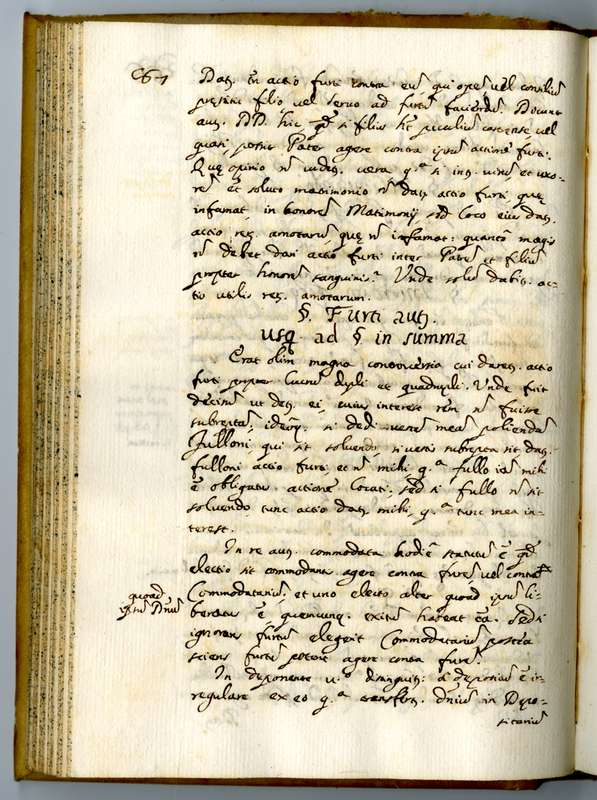 Dat. tn̄ actio furti contra eū, qui opē, vel consiliū
prestitit filio vel servo ad furtū faciendū. Docent
aut. DD. hic, qđ si filius ht̄ peculiū castrense, vel
quasi, possit Pater agere contra ipsū actione furti.
Quę opinio n̄ videt. vera q.ª si int. virū et uxo-
rē et soluto matrimonio n̄ dat. actio furti quę
infamat, in honorē Matrimonij, sed loco eius dat.
actio rer. amotarū, quę n̄ infamat: quantò magis
n̄ debet dari actio furti inter Patrē et filiū
propter honorē sanguinis? Unde solū dabit. ac-
tio utilis rer. amotarum.
§. Furti aut.
usq. ad § in summa
Erat olim magna controversia cui daret. actio
furti propter lucrū dupli et quadrupli. Unde fuit
decisū ut det. ei, cuius interest rem n̄ fuisse
subreptā, ideoq. si dedi vestē meā poliendā
fulloni, qui sit solvendo, si vestis subrepta sit dat.
fulloni actio furti et n̄ mihi q.ª fullo iā mihi
ē obligatus actione locati; sed si fullo n̄ sit
solvendo tunc actio dat. mihi, q.ª tunc mea in-
terest.
In re aut. commodata hodiē statutū ē qđ
electio sit commodanti agere contra furē vel contrà
Commodatariū; et uno electo alter quoad ipsū li-
quoad
ipsū Dn̄ū
beratus ē quencunq. exitū habeat cā. Sed si
ignorans furtū elegerit Commodatariū, postea
sciens furtū poterit agere contra furē.
In deponente v.º distinguit.: depositū ē ir-
regulare ex eo q.ª transfert. dn̄iū in Depo-
sitariū